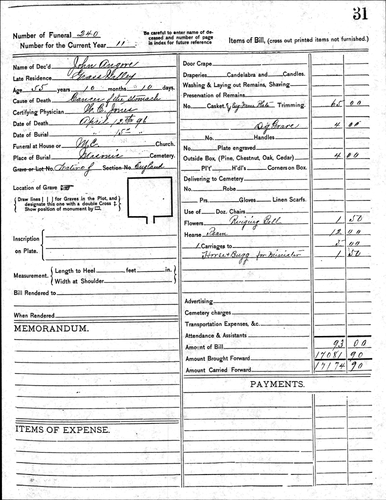 31
Number of Funeral 240
Number for the Current Year 11
Be carefully to enter name of deceased and number of page in index for future reference
Items of Bill, (cross out printed items not furnished.)
Name of Dec'd John Angove
Late Residence Grass Valley
Age 55 years 10 months 10 days
Cause of Death Cancer of the Stomach
Certifying Physician W. C. Jones
Date of Death April 13th 96
Date of Burial " 15th "
Funeral at House or M.E. Church.
Place of Burial Masonic Cemetery.
Grave or Lot No. Native of Section No. England
Location of Grave
Draw lines for Graves in the Plot, and designate this one with a double Cross
Show position of monument by
Inscription on Plate.
Measurement. Length to Heel feet in.
Width at Shoulder
Bill Rendered to
When Rendered
MEMORANDUM.
ITEMS OF EXPENSE.
Door Crape
Draperies, Candelabra and Candles.
Washing & Laying out Remains, Shaving
Preservation of Remains
No. Casket Plate Trimming. 65 00
Dig Grave 4 00
No. Handles
Plate engraved
Outside Box (Pine, Chestnut, Oak, Cedar) 4 00
P'Y H'd's Corners on Box.
Delivering to Cemetery
No. Robe
Prs. Gloves Linen Scarfs.
Use of Doz. Chairs
Flowers Ringing Bell 1 50
Hearse Team 12 00
1 Carriages to 5 00
Horse & Bugg for Minister 1 50
Advertising
Cemetery charges
Transportation Expenses, &c.
Attendance & Assistants
Amount of Bill 93 00
Amount Brought Forward 17081 90
Amount Carried Forward 17174 90
PAYMENTS.